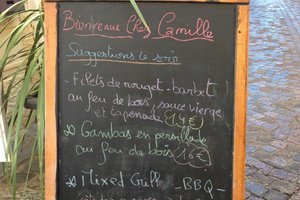 Bienvenue Chez Camille
Suggestions ce soir
- Filets de rouget-barbet
au feu de bois, sauce vierge
et tapenade 19€
Gambas en persillade
au feu de bois 16€
Mixed Grill - BBQ -